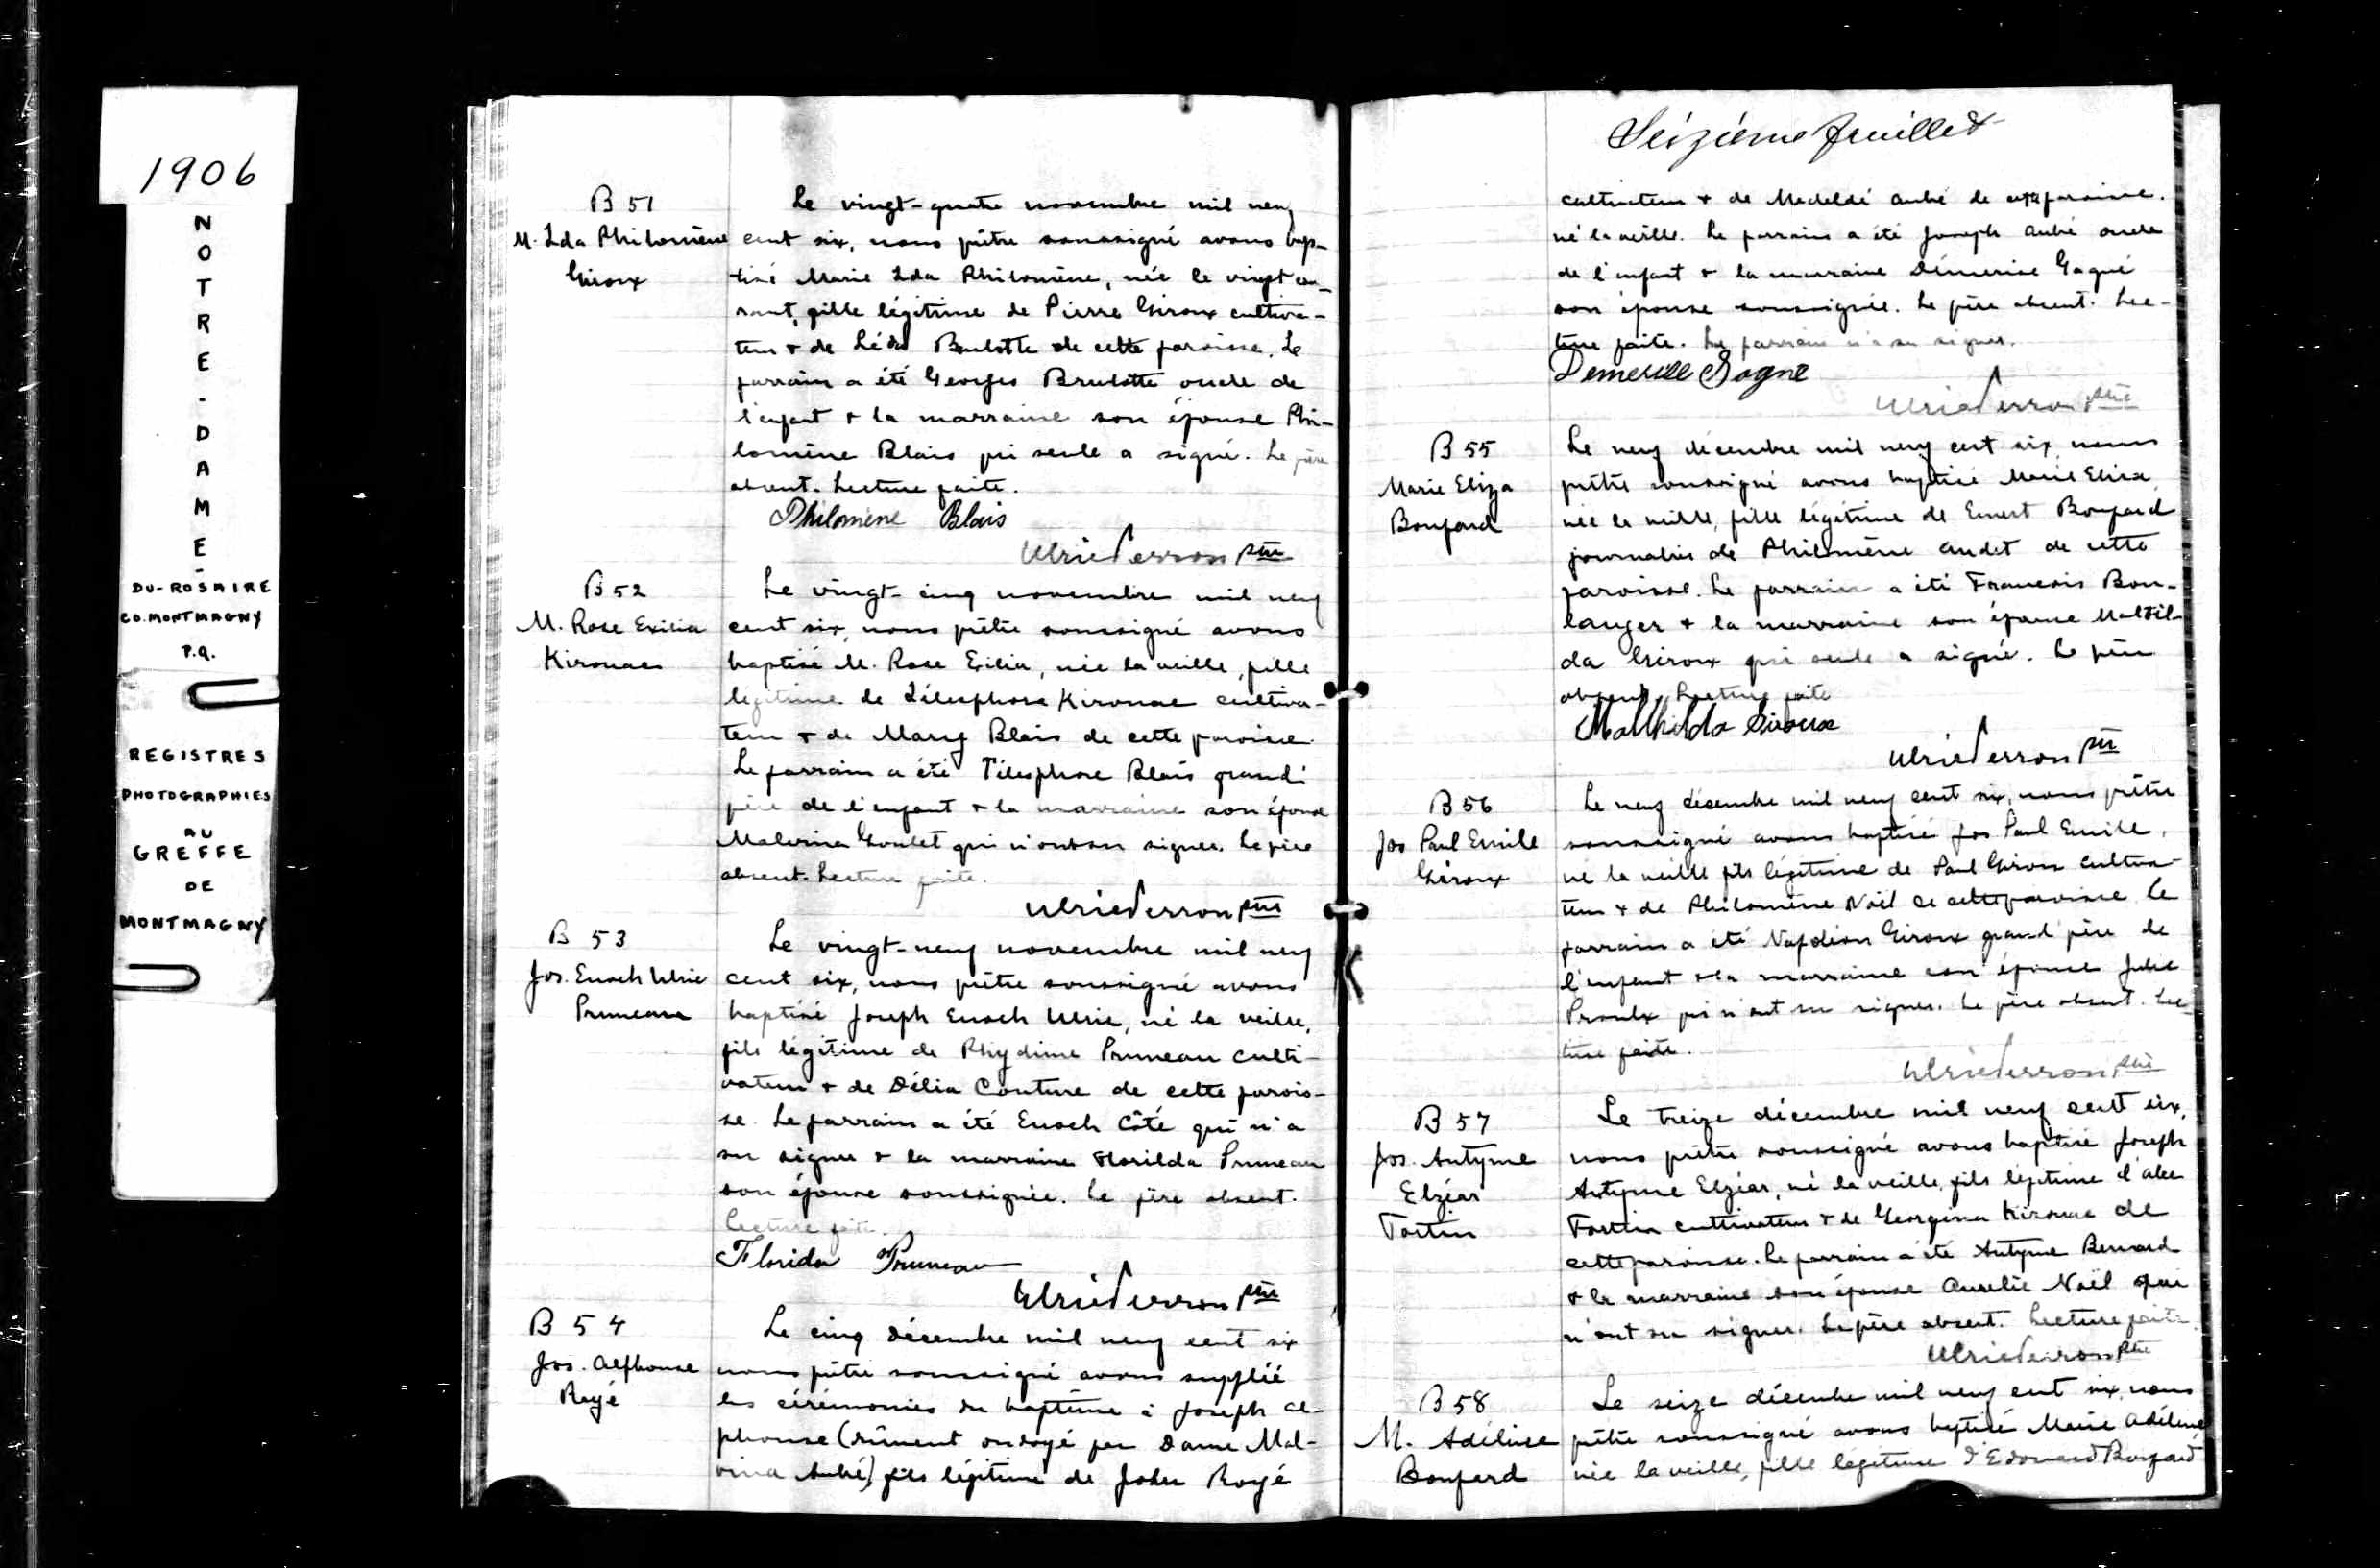 1906
NOTRE-DAME-
DU-ROSAIRE
CO. MONTMAGNY
P.Q.
REGISTRES
PHOTOGRAPHIES
AU
GREFFE
DE
MONTMAGNY
B 51
M. Ida Philomène
Giroux
Le vingt-quatre novembre mil neuf
cent six, nous prêtre soussigné avons bap-
tisé Marie Ida Philomène, née le vingt cou-
rant, fille légitime de Pierre Giroux cultiva-
teur & de Léda Brulotte de cette paroisse. Le
parrain a été Georges Brulotte oncle de
l'enfant & la marraine son épouse Phi-
lomène Blais qui seule a signé. Le père
absent. Lecture faite.
Philomène Blais
Ulric Perron ptre
B 52
M. Rose Exilia
Kirouac
Le vingt-cinq novembre mil neuf
cent six, nous prêtre soussigné avons
baptisé M. Rose Exilia, née la veille, fille
légitime de Télesphore Kirouac cultiva-
teur & de Mary Blais de cette paroisse.
Le parrain a été Télesphore Blais grand-
père de l'enfant & la marraine son épouse
Malvina Goulet qui n'ont su signer. Le père
absent. Lecture faite.
Ulric Perron ptre
B 53
Jos. Enoch Ulric
Pruneau
Le vingt-neuf novembre mil neuf
cent six, nous prêtre soussigné avons
baptisé Joseph Enoch Ulric, né la veille,
fils légitime de Rhydime Pruneau culti-
vateur & de Délia Couture de cette parois-
se. Le parrain a été Enoch Côté qui n'a
su signer & la marraine Florilda Pruneau
son épouse soussignée. Le père absent.
Lecture faite.
Florida Pruneau
Ulric Perron ptre
B 54
Jos. Alphonse
Royé
Le cinq décembre mil neuf cent six
nous prêtre soussigné avons suppléé
les cérémonies du baptême à Joseph Al-
phonse (dûment ondoyé par Dame Mal-
vina Aubé) fils légitime de John Royé
Seizième feuillet
cultivateur & de Medeldé Aubé de cette paroisse.
né la veille. Le parrain a été Joseph Aubé oncle
de l'enfant & la marraine Démerise Gagné
son épouse soussignée. Le père absent. Lec-
ture faite. Le parrain n'a su signer.
Demerise Gagné
Ulric Perron ptre
B 55
Marie Eliza
Boufard
Le neuf décembre mil neuf cent six nous
prêtre soussigné avons baptisé Marie Eliza
née la veille, fille légitime de Ernest Boufard
journalier de Philomène Audet de cette
paroisse. Le parrain a été Francois Bou-
langer & la marraine son épouse Mathil-
da Giroux qui seule a signé. Le père
absent. Lecture faite
Mathilda Giroux
Ulric Perron ptre
B 56
Jos Paul Emile
Giroux
Le neuf décembre mil neuf cent six, nous prêtre
soussigné avons baptisé Jos Paul Emile,
né la veille fils légitime de Paul Giroux cultiva-
teur & de Philomène Noël de cette paroisse. Le
parrain a été Napoléon Giroux grand père de
l'enfant & la marraine son épouse Julie
Proulx qui n'ont su signer. Le père absent. Lec-
ture faite.
Ulric Perron ptre
B 57
Jos. Antyme
Elzéar
Fortin
Le treize décembre mil neuf cent six,
nous prêtre soussigné avons baptisé Joseph
Antyme Elzéar, né la veille, fils légitime d'Alec
Fortin cultivateur & de Georgina Kirouac de
cette paroisse. Le parrain a été Antyme Bernard
& la marraine son épouse Aurelie Noël qui
n'ont su signer. Le père absent. Lecture faite.
Ulric Perron ptre
B 58
M. Adéline
Boufard
Le seize décembre mil neuf cent six, nous
prêtre soussigné avons baptisé Marie Adéline
née la veille, fille légitime d'Edouard Boufard